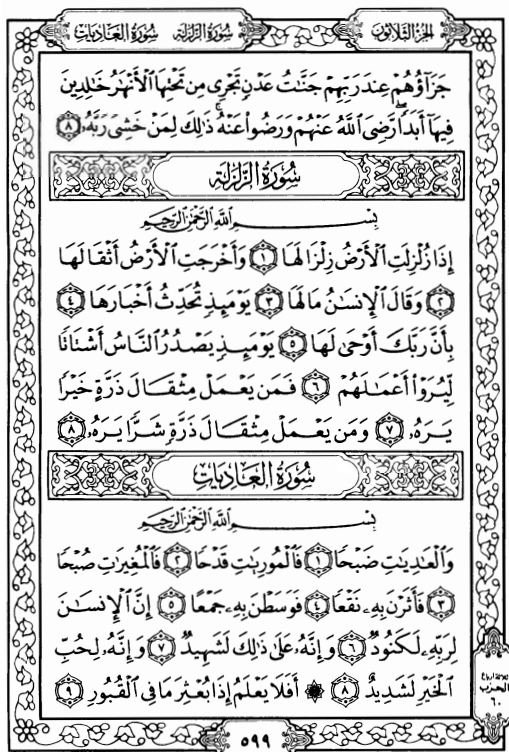 الجزء الثلاثون
سُورَةُ الزَّلْزَلَة سُورَةُ العَادِيَات
جَزَآؤُهُمْ عِندَ رَبِّهِمْ جَنَّٰتُ عَدْنٍ تَجْرِى مِن تَحْتِهَا ٱلْأَنْهَٰرُ خَٰلِدِينَ
فِيهَآ أَبَدًا ۖ رَّضِىَ ٱللَّهُ عَنْهُمْ وَرَضُوا۟ عَنْهُ ۚ ذَٰلِكَ لِمَنْ خَشِىَ رَبَّهُۥ ٨
سُورَةُ الزَّلْزَلَةِ
بِسْمِ ٱللَّهِ ٱلرَّحْمَٰنِ ٱلرَّحِيمِ
إِذَا زُلْزِلَتِ ٱلْأَرْضُ زِلْزَالَهَا ١ وَأَخْرَجَتِ ٱلْأَرْضُ أَثْقَالَهَا
٢ وَقَالَ ٱلْإِنسَٰنُ مَا لَهَا ٣ يَوْمَئِذٍ تُحَدِّثُ أَخْبَارَهَا ٤
بِأَنَّ رَبَّكَ أَوْحَىٰ لَهَا ٥ يَوْمَئِذٍ يَصْدُرُ ٱلنَّاسُ أَشْتَاتًا
لِّيُرَوْا۟ أَعْمَٰلَهُمْ ٦ فَمَن يَعْمَلْ مِثْقَالَ ذَرَّةٍ خَيْرًا
يَرَهُۥ ٧ وَمَن يَعْمَلْ مِثْقَالَ ذَرَّةٍ شَرًّا يَرَهُۥ ٨
سُورَةُ العَادِيَاتِ
بِسْمِ ٱللَّهِ ٱلرَّحْمَٰنِ ٱلرَّحِيمِ
وَٱلْعَٰدِيَٰتِ ضَبْحًا ١ فَٱلْمُورِيَٰتِ قَدْحًا ٢ فَٱلْمُغِيرَٰتِ صُبْحًا
٣ فَأَثَرْنَ بِهِۦ نَقْعًا ٤ فَوَسَطْنَ بِهِۦ جَمْعًا ٥ إِنَّ ٱلْإِنسَٰنَ
لِرَبِّهِۦ لَكَنُودٌ ٦ وَإِنَّهُۥ عَلَىٰ ذَٰلِكَ لَشَهِيدٌ ٧ وَإِنَّهُۥ لِحُبِّ
ٱلْخَيْرِ لَشَدِيدٌ ٨ ۞ أَفَلَا يَعْلَمُ إِذَا بُعْثِرَ مَا فِى ٱلْقُبُورِ ٩
ثلاثة أرباع
الحزب
٦٠
٥٩٩